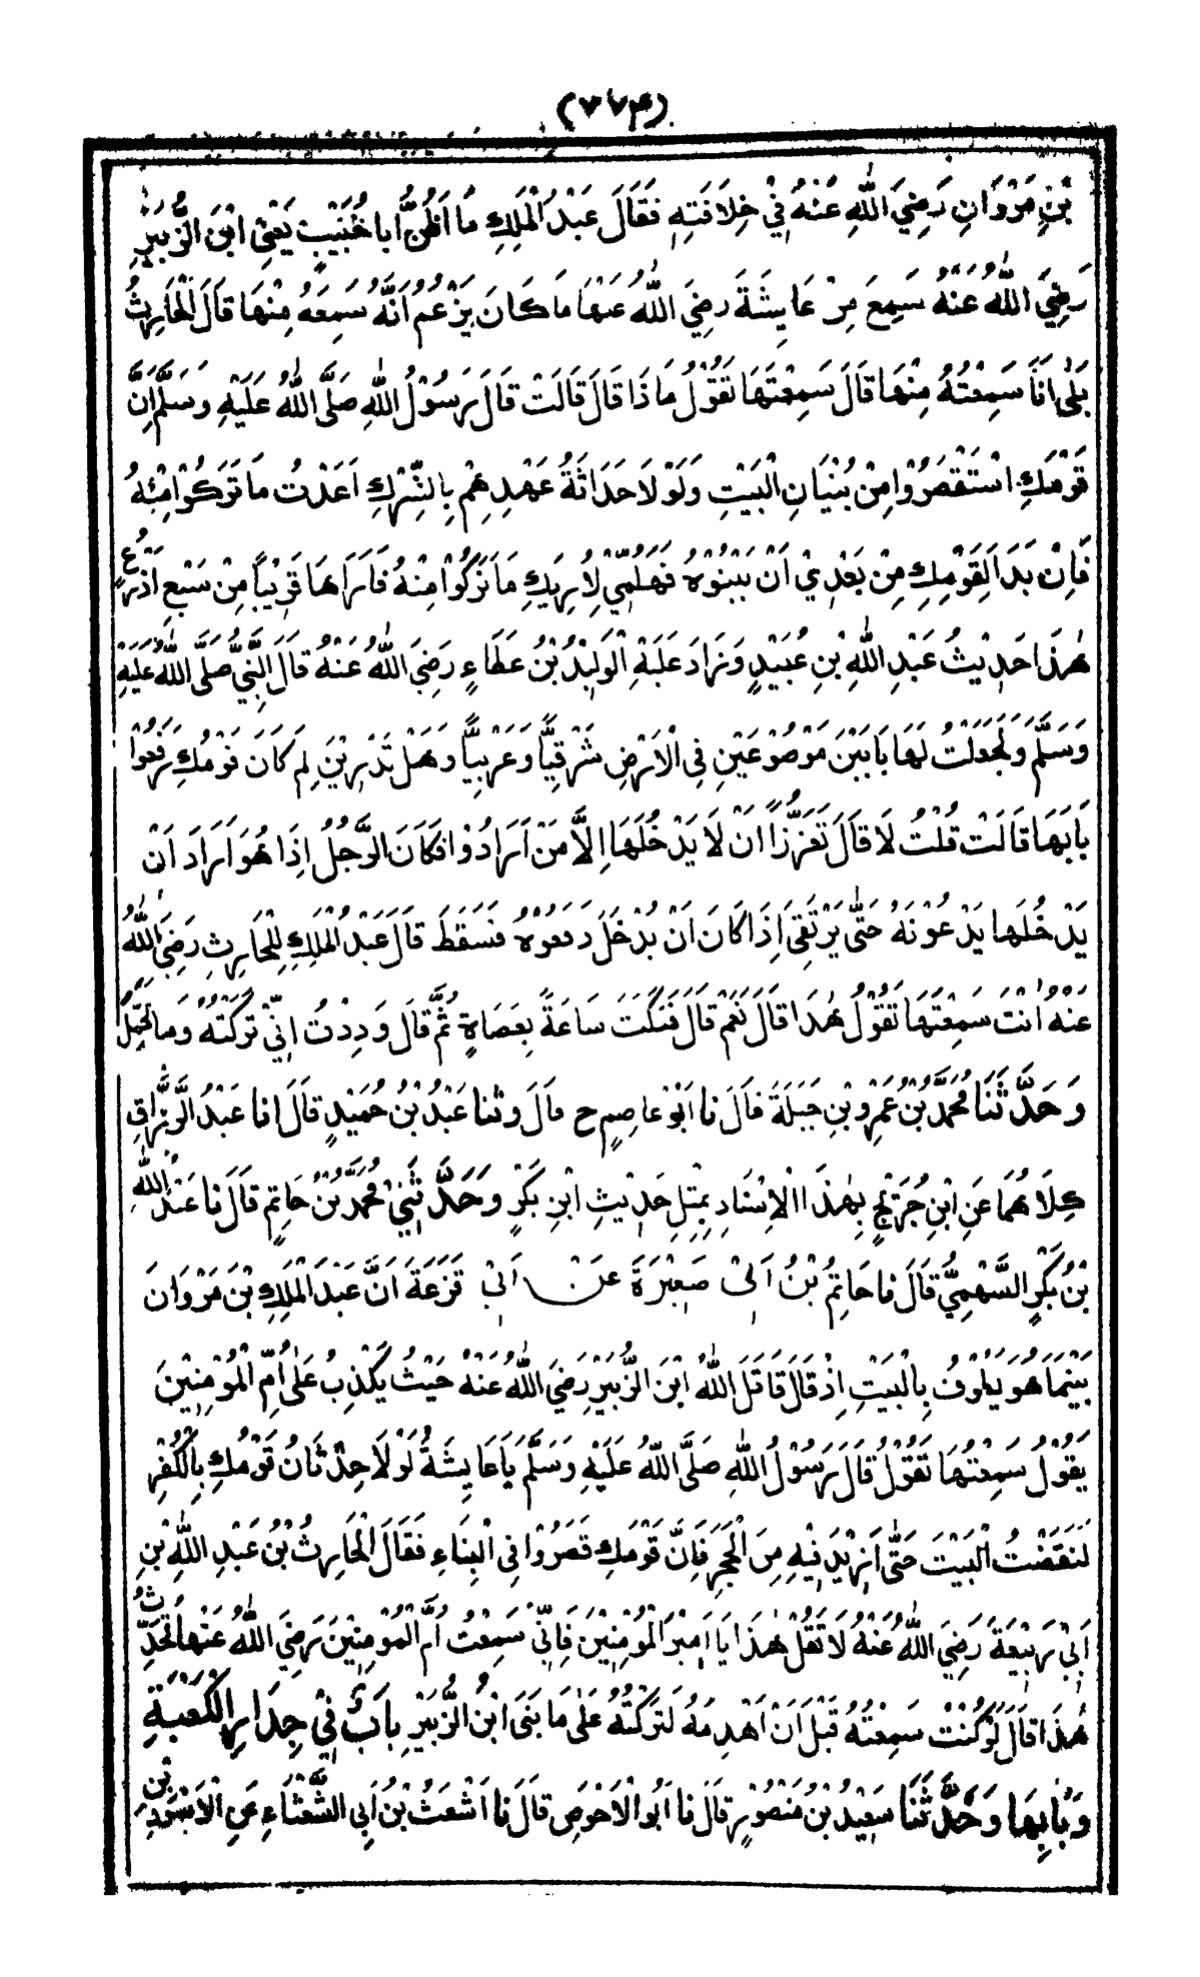 (۷۷۴)
بْنِ مَرْوَانِ رَضِيَ اللّٰهُ عَنْهُ فِيْ خِلَافَتِهٖ فَقَالَ عَبْدُ الْمَلِكِ مَا اَظُنُّ اَبَا خُبَيْبٍ يَعْنِي ابْنَ الزُّبَيْرِ
رَضِيَ اللّٰهُ عَنْهُ سَمِعَ مِنْ عَايِشَةَ رَضِيَ اللّٰهُ عَنْهَا مَا كَانَ يَزْعُمُ اَنَّهُ سَمِعَهُ مِنْهَا قَالَ الْحَارِثُ
بَلٰى اَنَا سَمِعْتُهُ مِنْهَا قَالَ سَمِعْتَهَا تَقُوْلُ مَا ذَا قَالَ قَالَتْ قَالَ رَسُوْلُ اللّٰهِ صَلَّى اللّٰهُ عَلَيْهِ وَسَلَّمَ اِنَّ
قَوْمَكِ اسْتَقْصَرُوْا مِنْ بُنْيَانِ الْبَيْتِ وَلَوْ لَا حَدَاثَةُ عَهْدِهِمْ بِالشِّرْكِ اَعَدْتُ مَا تَرَكُوْا مِنْهُ
فَاِنْ بَدَا لِقَوْمِكِ مِنْ بَعْدِيْ اَنْ يَبْنُوْهُ فَهَلُمِّيْ لِاُرِيَكِ مَا تَرَكُوْا مِنْهُ فَاَرَاهَا قَرِيْبًا مِنْ سَبْعِ اَذْرُعٍ
هٰذَا حَدِيْثُ عَبْدِ اللّٰهِ بْنِ عُبَيْدٍ وَزَادَ عَلَيْهِ الْوَلِيْدُ بْنُ عَطَاءٍ رَضِيَ اللّٰهُ عَنْهُ قَالَ النَّبِيُّ صَلَّى اللّٰهُ عَلَيْهِ
وَسَلَّمَ وَلَجَعَلْتُ لَهَا بَابَيْنَ مَوْضُوْعَيْنِ فِي الْاَرْضِ شَرْقِيًّا وَغَرْبِيًّا وَهَلْ تَدْرِيْنَ لِمَ كَانَ قَوْمُكِ رَفَعُوْا
بَابَهَا قَالَتْ قُلْتُ لَا قَالَ تَعَزُّزًا اَنْ لَا يَدْخُلَهَا اِلَّا مَنْ اَرَادُوْا فَكَانَ الرَّجُلُ اِذَا هُوَ اَرَادَ اَنْ
يَدْخُلَهَا يَدْعُوْنَهُ حَتّٰى يَرْتَقِيَ اِذَا كَانَ اَنْ يَدْخُلَ دَفَعُوْهُ فَسَقَطَ قَالَ عَبْدُ الْمَلِكِ لِلْحَارِثِ رَضِيَ اللّٰهُ
عَنْهُ اَنْتَ سَمِعْتَهَا تَقُوْلُ هٰذَا قَالَ نَعَمْ قَالَ فَنَكَتَ سَاعَةً بِعَصَاهُ ثُمَّ قَالَ وَدِدْتُ اِنِّيْ تَرَكْتُهُ وَمَا تَحَمَّلَ
وَحَدَّثَنَا مُحَمَّدُ بْنُ عَمْرِو بْنِ جَبَلَةَ قَالَ نَا اَبُوْ عَاصِمٍ ح قَالَ وَثنا عَبْدُ بْنُ حُمَيْدٍ قَالَ انا عَبْدُ الرَّزَّاقِ
كِلَاهُمَا عَنِ ابْنِ جُرَيْجٍ بِهٰذَا الْاِسْنَادِ بِمِثْلِ حَدِيْثِ ابْنِ بَكْرٍ وَحَدَّثَنِيْ مُحَمَّدُ بْنُ حَاتِمٍ قَالَ نا عَبْدُ اللّٰهِ
بْنُ بَكْرٍ السَّهْمِيُّ قَالَ نا حَاتِمُ بْنُ اَبِيْ صَغِيْرَةَ عَنْ اَبِيْ قَزَعَةَ اَنَّ عَبْدَ الْمَلِكِ بْنَ مَرْوَانَ
بَيْنَمَا هُوَ يَطُوْفُ بِالْبَيْتِ اِذْ قَالَ قَاتَلَ اللّٰهُ ابْنَ الزُّبَيْرِ رَضِيَ اللّٰهُ عَنْهُ حَيْثُ يَكْذِبُ عَلٰى اُمِّ الْمُوْمِنِيْنَ
يَقُوْلُ سَمِعْتُهَا تَقُوْلُ قَالَ رَسُوْلُ اللّٰهِ صَلَّى اللّٰهُ عَلَيْهِ وَسَلَّمَ يَا عَايِشَةُ لَوْ لَا حِدْثَانُ قَوْمِكِ بِالْكُفْرِ
لَنَقَضْتُ الْبَيْتَ حَتّٰى اَزِيْدَ فِيْهِ مِنَ الْحَجَرِ فَاِنَّ قَوْمَكِ قَصَرُوْا فِي الْبِنَاءِ فَقَالَ الْحَارِثُ بْنُ عَبْدِ اللّٰهِ بْنِ
اَبِيْ رَبِيْعَةَ رَضِيَ اللّٰهُ عَنْهُ لَا تَقُلْ هٰذَا يَا اَمِيْرَ الْمُوْمِنِيْنَ فَاِنِّيْ سَمِعْتُ اُمَّ الْمُوْمِنِيْنَ رَضِيَ اللّٰهُ عَنْهَا تُحَدِّثُ
هٰذَا قَالَ لَوْ كُنْتُ سَمِعْتُهُ قَبْلَ اَنْ اَهْدِمَهُ لَتَرَكْتُهُ عَلٰى مَا بَنَى ابْنُ الزُّبَيْرِ بَابٌ فِيْ جِدَارِ الْكَعْبَةِ
وَبَابِهَا وَحَدَّثَنَا سَعِيْدُ بْنُ مَنْصُوْرٍ قَالَ نا اَبُو الْاَحْوَصِ قَالَ نا اَشْعَثُ بْنُ اَبِي الشَّعْثَاءِ عَنِ الْاَسْوَدِ بْنِ